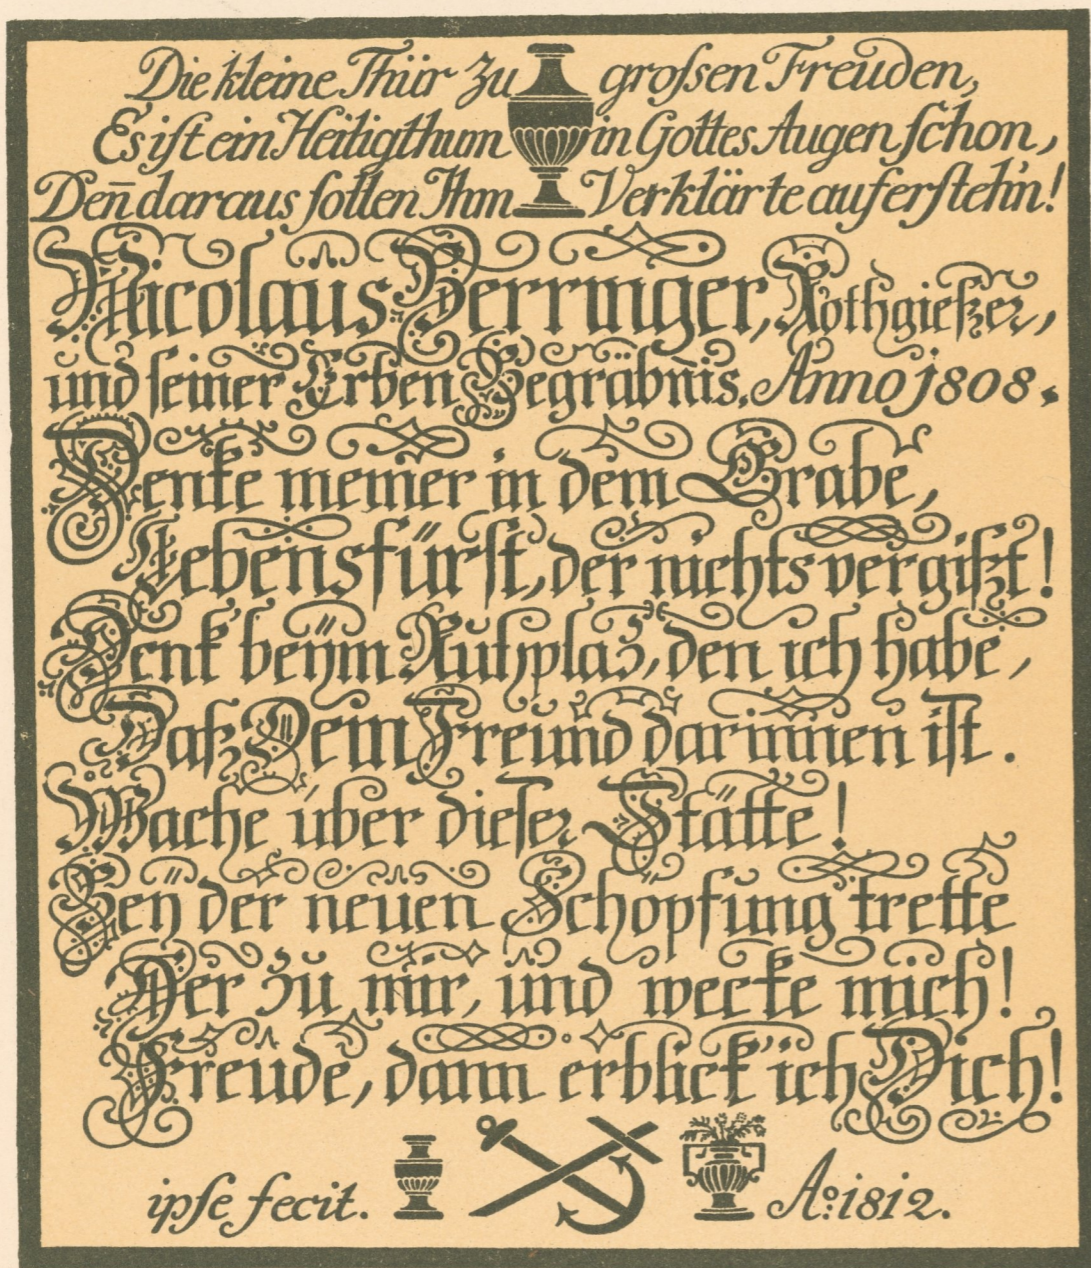 Die kleine Thür zu großen Freuden,
Es ist ein Heiligthum in Gottes Augen schon,
Deñ daraus sollen Ihm Verklärte auferstehn!
Nicolaus Berringer, Rothgießer,
und seiner Erben Begräbnis. Anno 1808.
Denke meiner in dem Grabe,
Lebensfürst, der nichts vergißt!
Denk' beÿm Ruhplaz, den ich habe,
Daß Dein Freund darinnen ist.
Wache über dieser Stätte!
Beÿ der neuen Schöpfung trette
Her zu mir, und wecke mich!
Freude, dann erblick' ich Dich!
ipse fecit. Aº: 1812.